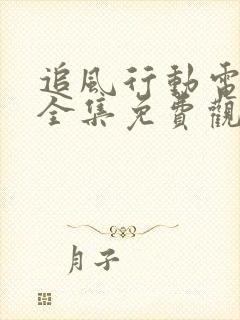 追風行動電
全集免費觀
月子